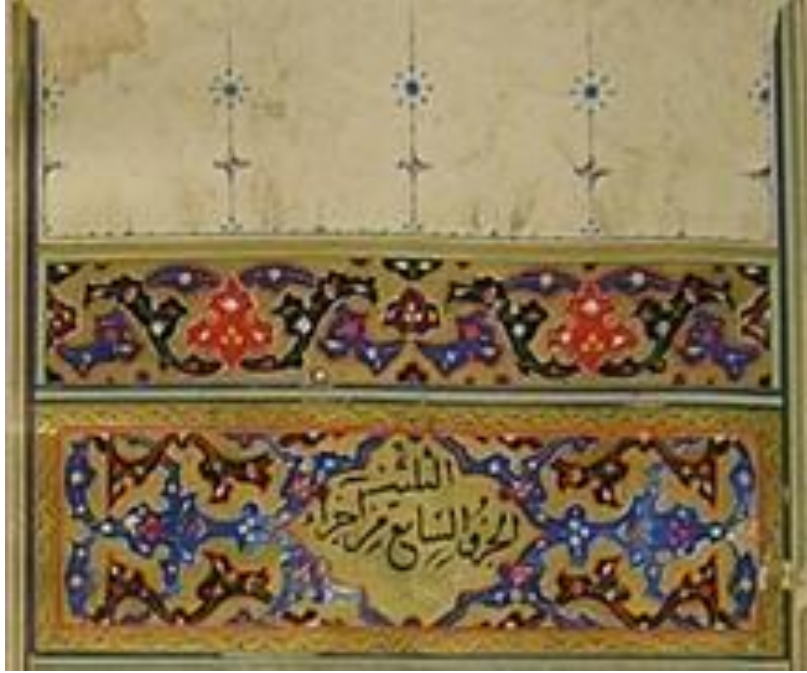 الجزؤ السابع من اجزاء
الثلثين